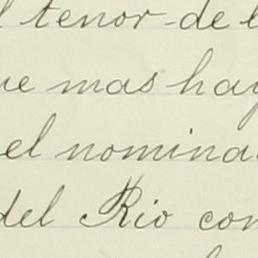 l tenor de l
ue mas hay
el nomina
del Rio con